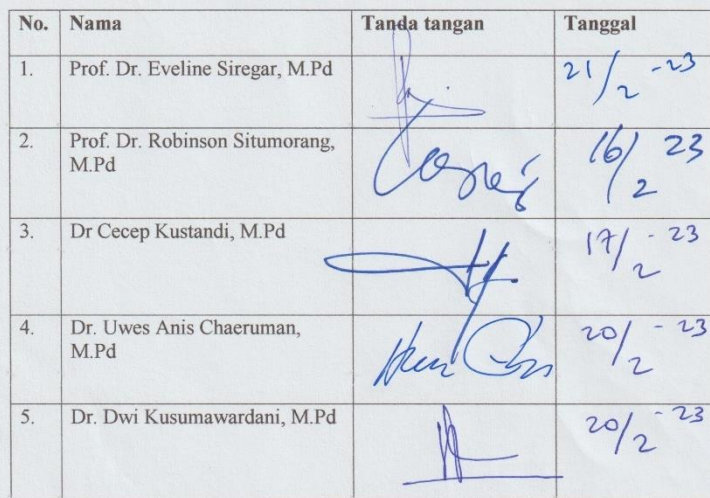 No. Nama Tanda tangan Tanggal
1. Prof. Dr. Eveline Siregar, M.Pd 21/2 -23
2. Prof. Dr. Robinson Situmorang, 16/2 23
M.Pd
3. Dr Cecep Kustandi, M.Pd 17/2 - 23
4. Dr. Uwes Anis Chaeruman, 20/2 - 23
M.Pd
5. Dr. Dwi Kusumawardani, M.Pd 20/2 - 23